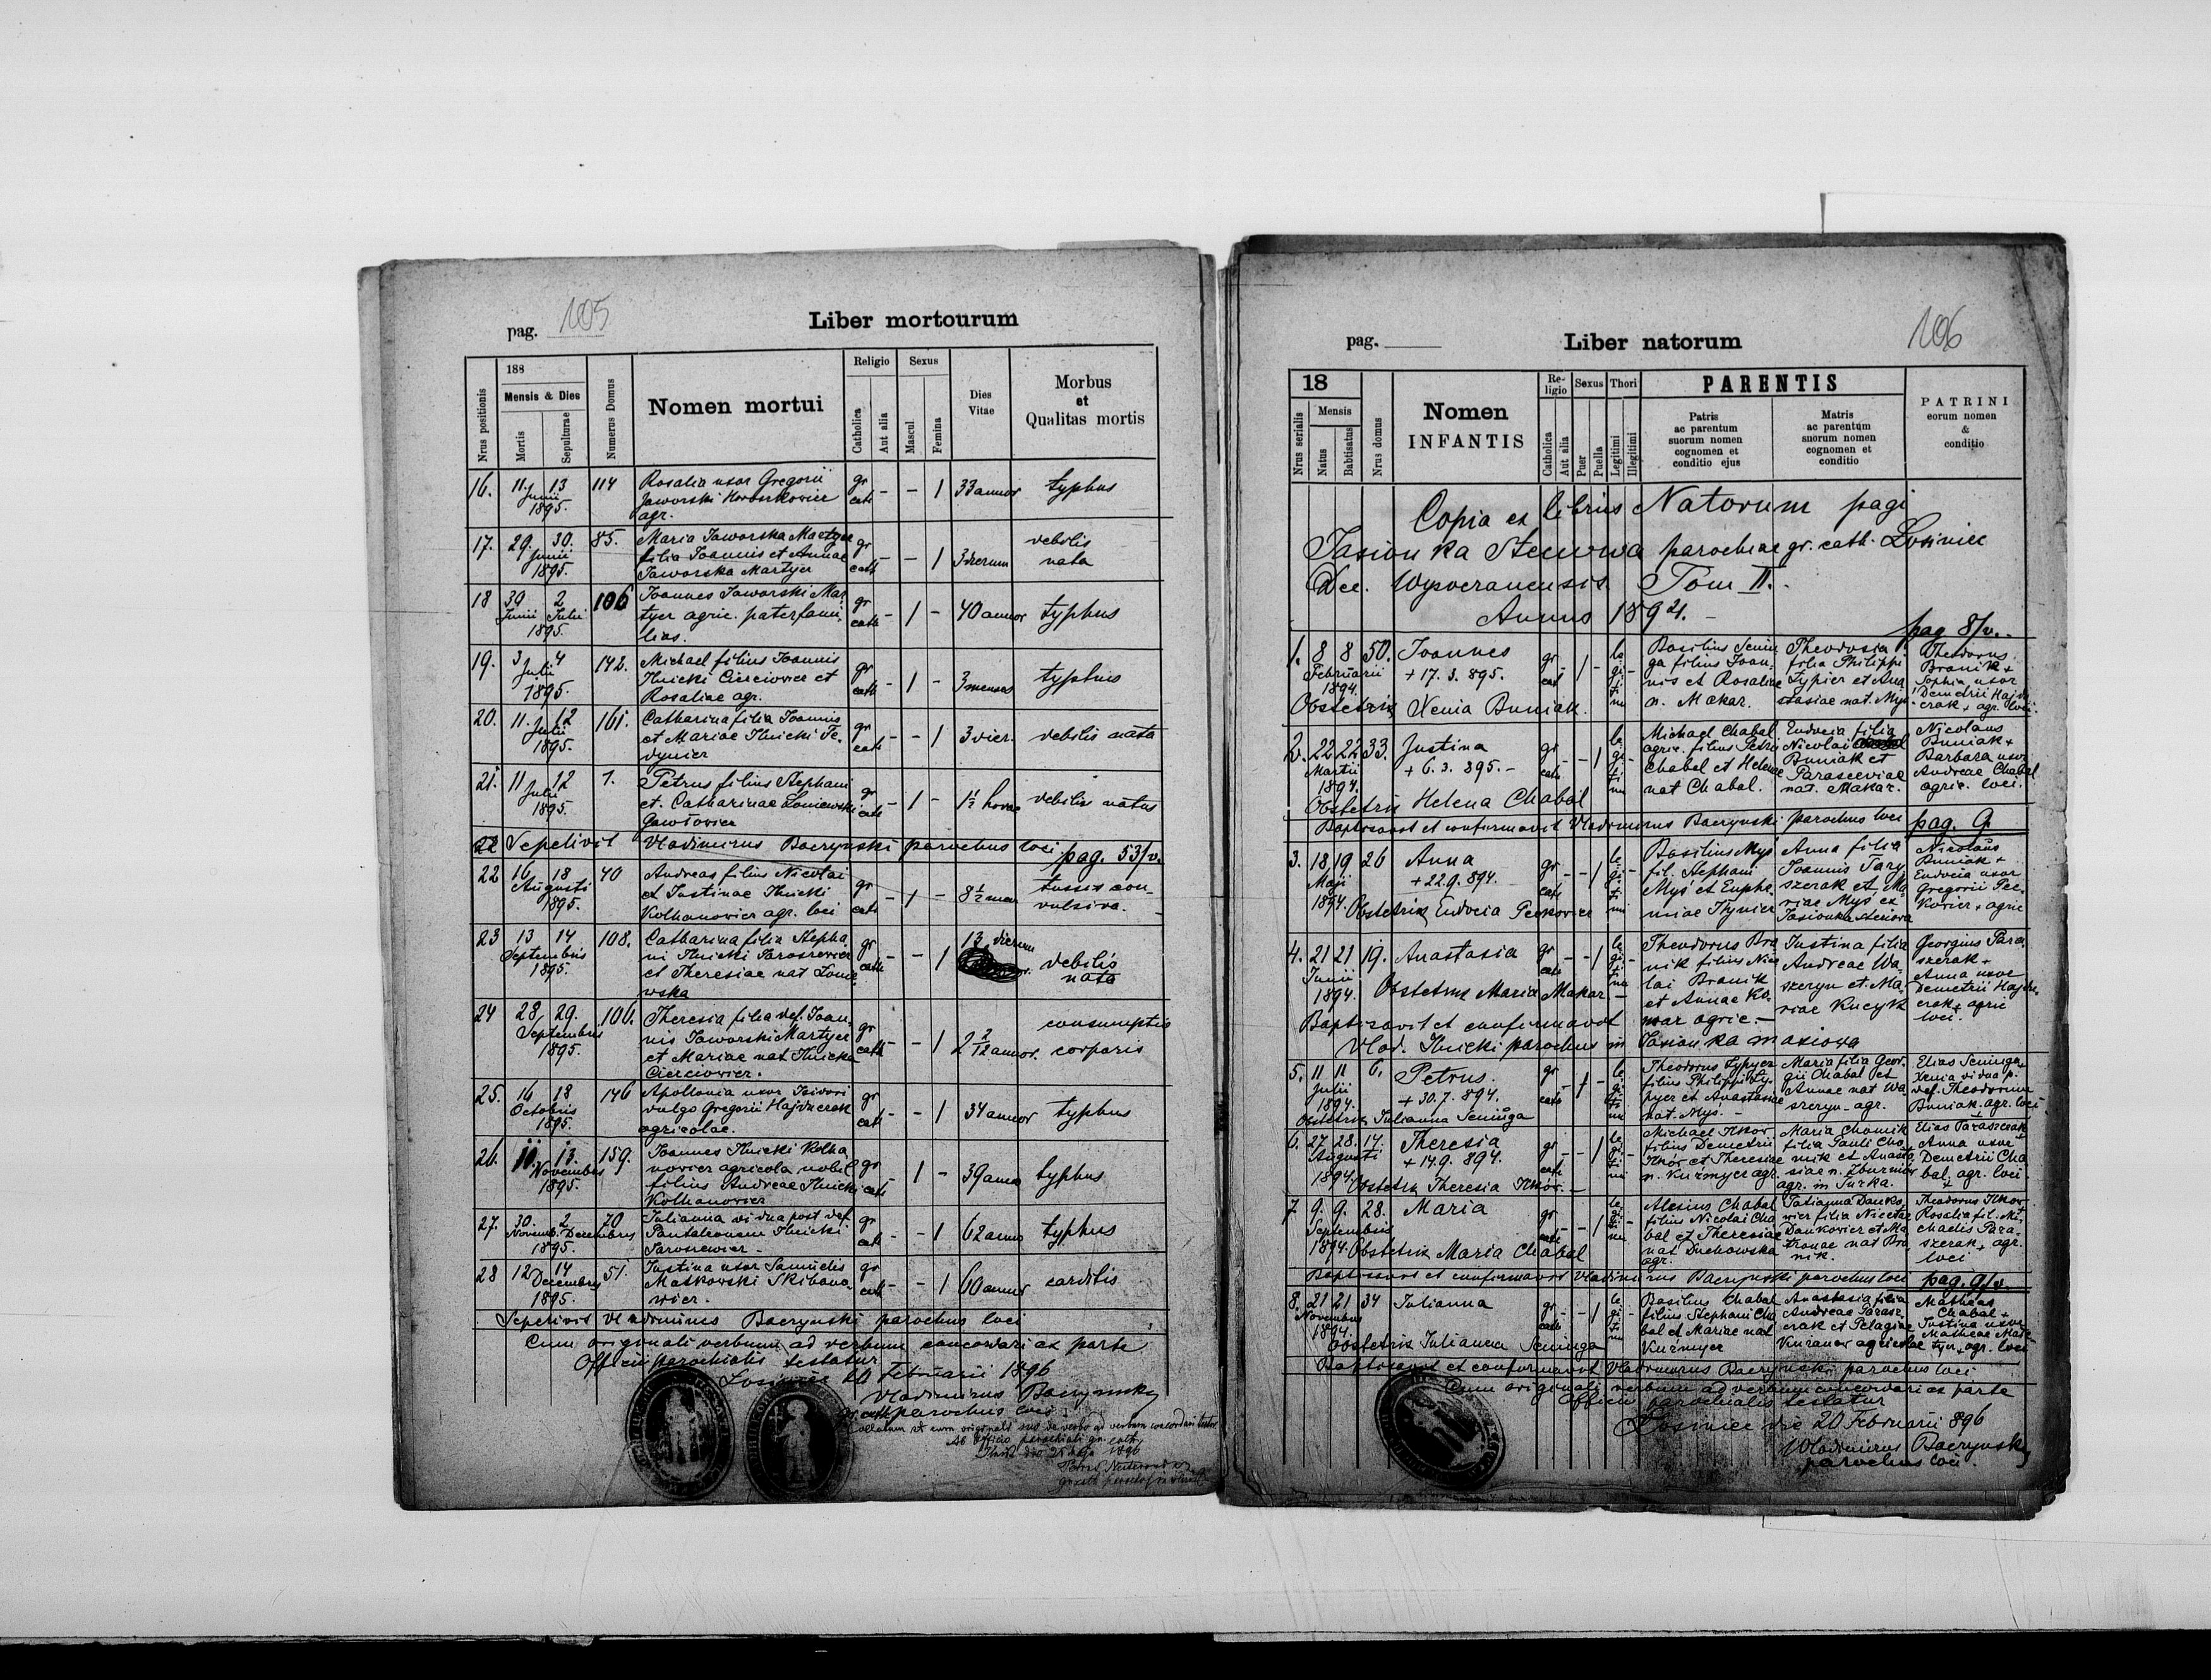 pag. 105
Liber mortourum
188
Religio
Sexus
Nrus positionis
Mensis & Dies
Mortis
Sepulturae
Numerus Domus
Nomen mortui
Catholica
Aut alia
Mascul
Femina
Dies
Vitae
Morbus
et
Qualitas mortis
16. 11 13 114 Rosalia uxor Gregorii gr - - 1 33 annor typhus
Junii Jaworski cath
1895. agr.
17. 29. 30. 85. Maria Jaworska Martyer gr - - 1 3 dierum debilis
Junii filia Joannis et Annae cath nata
1895. Jaworska Martyer
18 30 2 106 Joannes Jaworski Mar gr - 1 - 40 annor typhus
Junii Julii tyer agric. paterfami cath
1895. lias.
19. 3 4 142. Michael filius Joannis gr - 1 - 3 menses typhus
Julii Ilnicki Cierciowicz et cath
1895. Rosaliae agr.
20. 11. 12 161. Catharina filia Joannis gr - - 1 3 dier. debilis nata
Julii et Mariae Ilnicki Fe cath
1895. dynicz
21. 11 12 7. Petrus filius Stephani gr - 1 - 1½ horae debilis natus
Julii et Catharinae cath
1895. Gawłowicz
22 Sepelivit Vladimirus Baczynski parochus loci pag. 53/v.
22 16 18 40 Andreas filius Nicolai gr - 1 - 8½ men tussis con
Augusti et Justinae Ilnicki cath vulsiva.
1895. Kolhanowicz agr. loci
23 13 14 108. Catharina filia Stepha gr - - 1 13 dierum debilis
Septembris ni Ilnicki cath nata
1895. et Theresiae nat
wska
24 28 29. 106. Theresia filia def. Joan gr - - 1 2 2/12 annor. consumptio
Septembris nis Jaworski Martyer cath corporis
1895. et Mariae nat Ilnicka
Cierciowicz.
25. 16 18 146 Apollonia uxor Isidori gr - - 1 34 annor typhus
Octobris vulgo Gregorii Hajduczok cath
1895. agricolae.
26. 11. 13. 159. Joannes Ilnicki Kolha gr - 1 - 39 anno typhus
Novembris nowicz agricola nobil cath
1895. filius Andreae Ilnicki
Kolhanowicz
27. 30. 2 70 Julianna vidua post def gr - - 1 62 anno typhus
Novemb. Decembris Pantaleonem Ilnicki cath
1895.
28 12 14 51. Justina uxor Samuelis gr - - 1 60 annor carditis
Decembris Matkowski Skibano cath
1895. wicz.
Sepelivit Vladimirus Baczynski parochus loci
Cum originali verbum ad verbum concordari ex parte
Officii parochialis testatur
Losiniec 20 Februarii 1896
Vladimirus Baczynsky
gr. cath. parochus loci
Collatum et cum originali suo de verbo ad verbum concordari testor
Ab Officio parochiali gr. cath.
1896
pag.
Liber natorum
106
18
Nrus serialis
Mensis
Natus
Babtisatus
Nrus domus
Nomen
INFANTIS
Re-
ligio
Sexus
Thori
Catholica
Aut alia
Puer
Puella
Legitimi
Illegitimi
PARENTIS
Patris
ac parentum
suorum nomen
cognomen et
conditio ejus
Matris
ac parentum
suorum nomen
cognomen et
conditio
PATRINI
eorum nomen
&
conditio
Copia ex libris Natorum pagi
Jasionka Steciowa parochiae gr. cath. Losiniec
Dec. Wysocranensis. Tom II.
Annus 1894.
pag 8/v.
1. 8 8 50. Joannes gr - 1 - le Basilius Senin Theodosia Theodorus
Februarii + 17. 3. 895. cat gi ga filius Joan filia Philippi Branik +
1894. ti nis et Rosaliae Typicz et Ana Sophia uxor
Obstetrix Xenia Buniak. mi n. Makar. stasiae nat. Myś Demetrii Hajdu
czak + agr. loci.
2. 22 22 33. Justina gr - - 1 le Michael Chabal Eudocia filia Nicolaus
Martii + 6. 3. 895. - cath gi agric. filius Petri Nicolai Buniak +
1894. ti Chabal et Helenae Buniak et Barbara uxor
Obstetrix Helena Chabal mi nat Chabal. Parasceviae Andreae Chabal
nat. Makar. agric. loci.
Baptisavit et confirmavit Vladimirus Baczynski parochus loci pag. 9
3. 18 19 26 Anna gr - - 1 le Basilius Myś Anna filia Nicolaus
Maji + 22. 9. 894. cath gi fil. Stephani Joannis Paraszczak et Ma Buniak +
1894. Obstetrix Eudocia mi Myś et Euphe riae Myś ex Eudocia uxor
miae Jasionka Steciowa Gregorii agric
4. 21 21 19. Anastasia gr - - 1 le Theodorus Bra Justina filia Georgius Para
Junii cath gi nik filius Nico Andreae Wa szczak +
1894. Obstetrix Maria Makar - lai Branik szeryn et Ma Anna uxor
et Annae Ko riae Kucyk Demetrii Hajdu
Baptisavit et confirmavit mar agric. - czak + agric
Vlad. Ilnicki parochus in Jasionka masiowa loci.
5. 11 11 6. Petrus. gr - 1 - le Theodorus Typycz Maria filia Geor Elias Seninga +
Julii + 30. 7. 894. cath gi filius Philippi Ty gii Chabal et Xenia vidua p.
1894. ti pycz et Anastasiae Annae nat Wa def. Theodorum
Obstetrix Julianna Seninga mi nat. Myś. - szeryn - agr. Buniak. agr. loci
6. 27 28. 14. Theresia gr - - 1 le Michael Ilkor Maria Chomik Elias Paraszczak
Augusti + 14. 9. 894. cath gi filius Demetrii filia Pauli Cho Anna uxor
1894 ti Ilkór et Theresiae mik et Anasta Demetrii Cha
Obstetrix Theresia Ilkór. - mi n. Kuzmycz agr. siae n. agr. in Turka. bal, agr. loci.
7 9. 9. 28. Maria gr - - 1 le Alexius Chabal Tatianna Danko Theodorus Ilkor
Septembris cath gi filius Nicolai Cha wicz filia Nicetae Rosalia fil. Mi
1894. Obstetrix Maria Chabal mi bal et Theresiae Dankowicz et Ma chaelis Para
nat Duchowska tronae nat Bra szczak + agr.
agr. nik. loci
Baptisavit et confirmavit Vladimirus Baczynski parochus loci pag. 9/v.
8. 21 21 34 Julianna gr - - 1 le Basilius Chabal Anastasia filia Matheus
Novembris cath gi filius Stephani Cha Andreae Parasz Chabal +
1894. ti bal et Mariae nat czak et Pelagiae Justina uxor
Obstetrix Julianna Seninga mi Kuzmycz agricolae Matheae agr. loci
Baptisavit et confirmavit Vladimirus Baczynski parochus loci
Cum originali verbum ad verbum concordari ex parte
Officii parochialis testatur
Losiniec die 20 Februarii 896
Vladimirus Baczynsky
parochus loci.